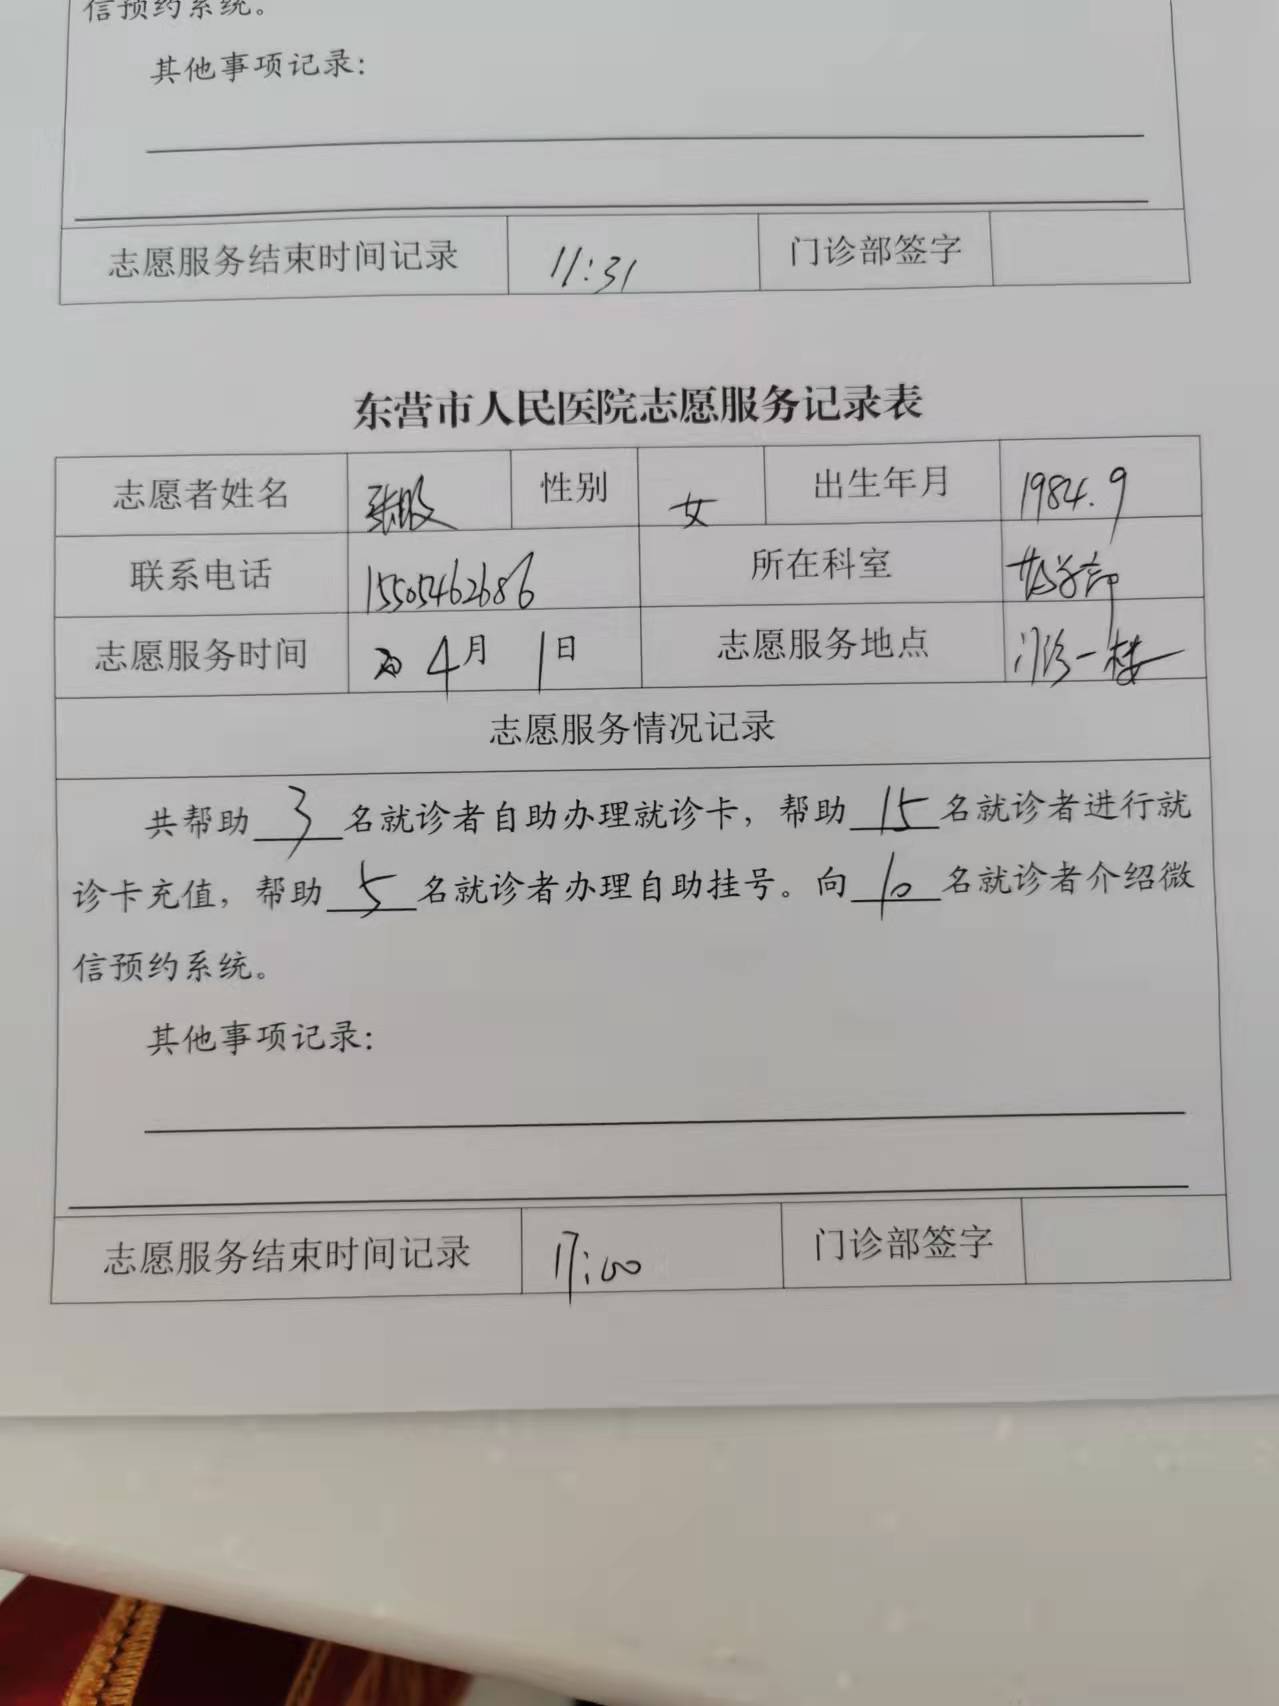 信预约系统。
其他事项记录：
志愿服务结束时间记录 11:31 门诊部签字
东营市人民医院志愿服务记录表
志愿者姓名 张 性别 女 出生年月 1984.9
联系电话 15505462686 所在科室
志愿服务时间 4月 1日 志愿服务地点 门诊一楼
志愿服务情况记录
共帮助 3 名就诊者自助办理就诊卡，帮助 15 名就诊者进行就
诊卡充值，帮助 5 名就诊者办理自助挂号。向 10 名就诊者介绍微
信预约系统。
其他事项记录：
志愿服务结束时间记录 17:00 门诊部签字